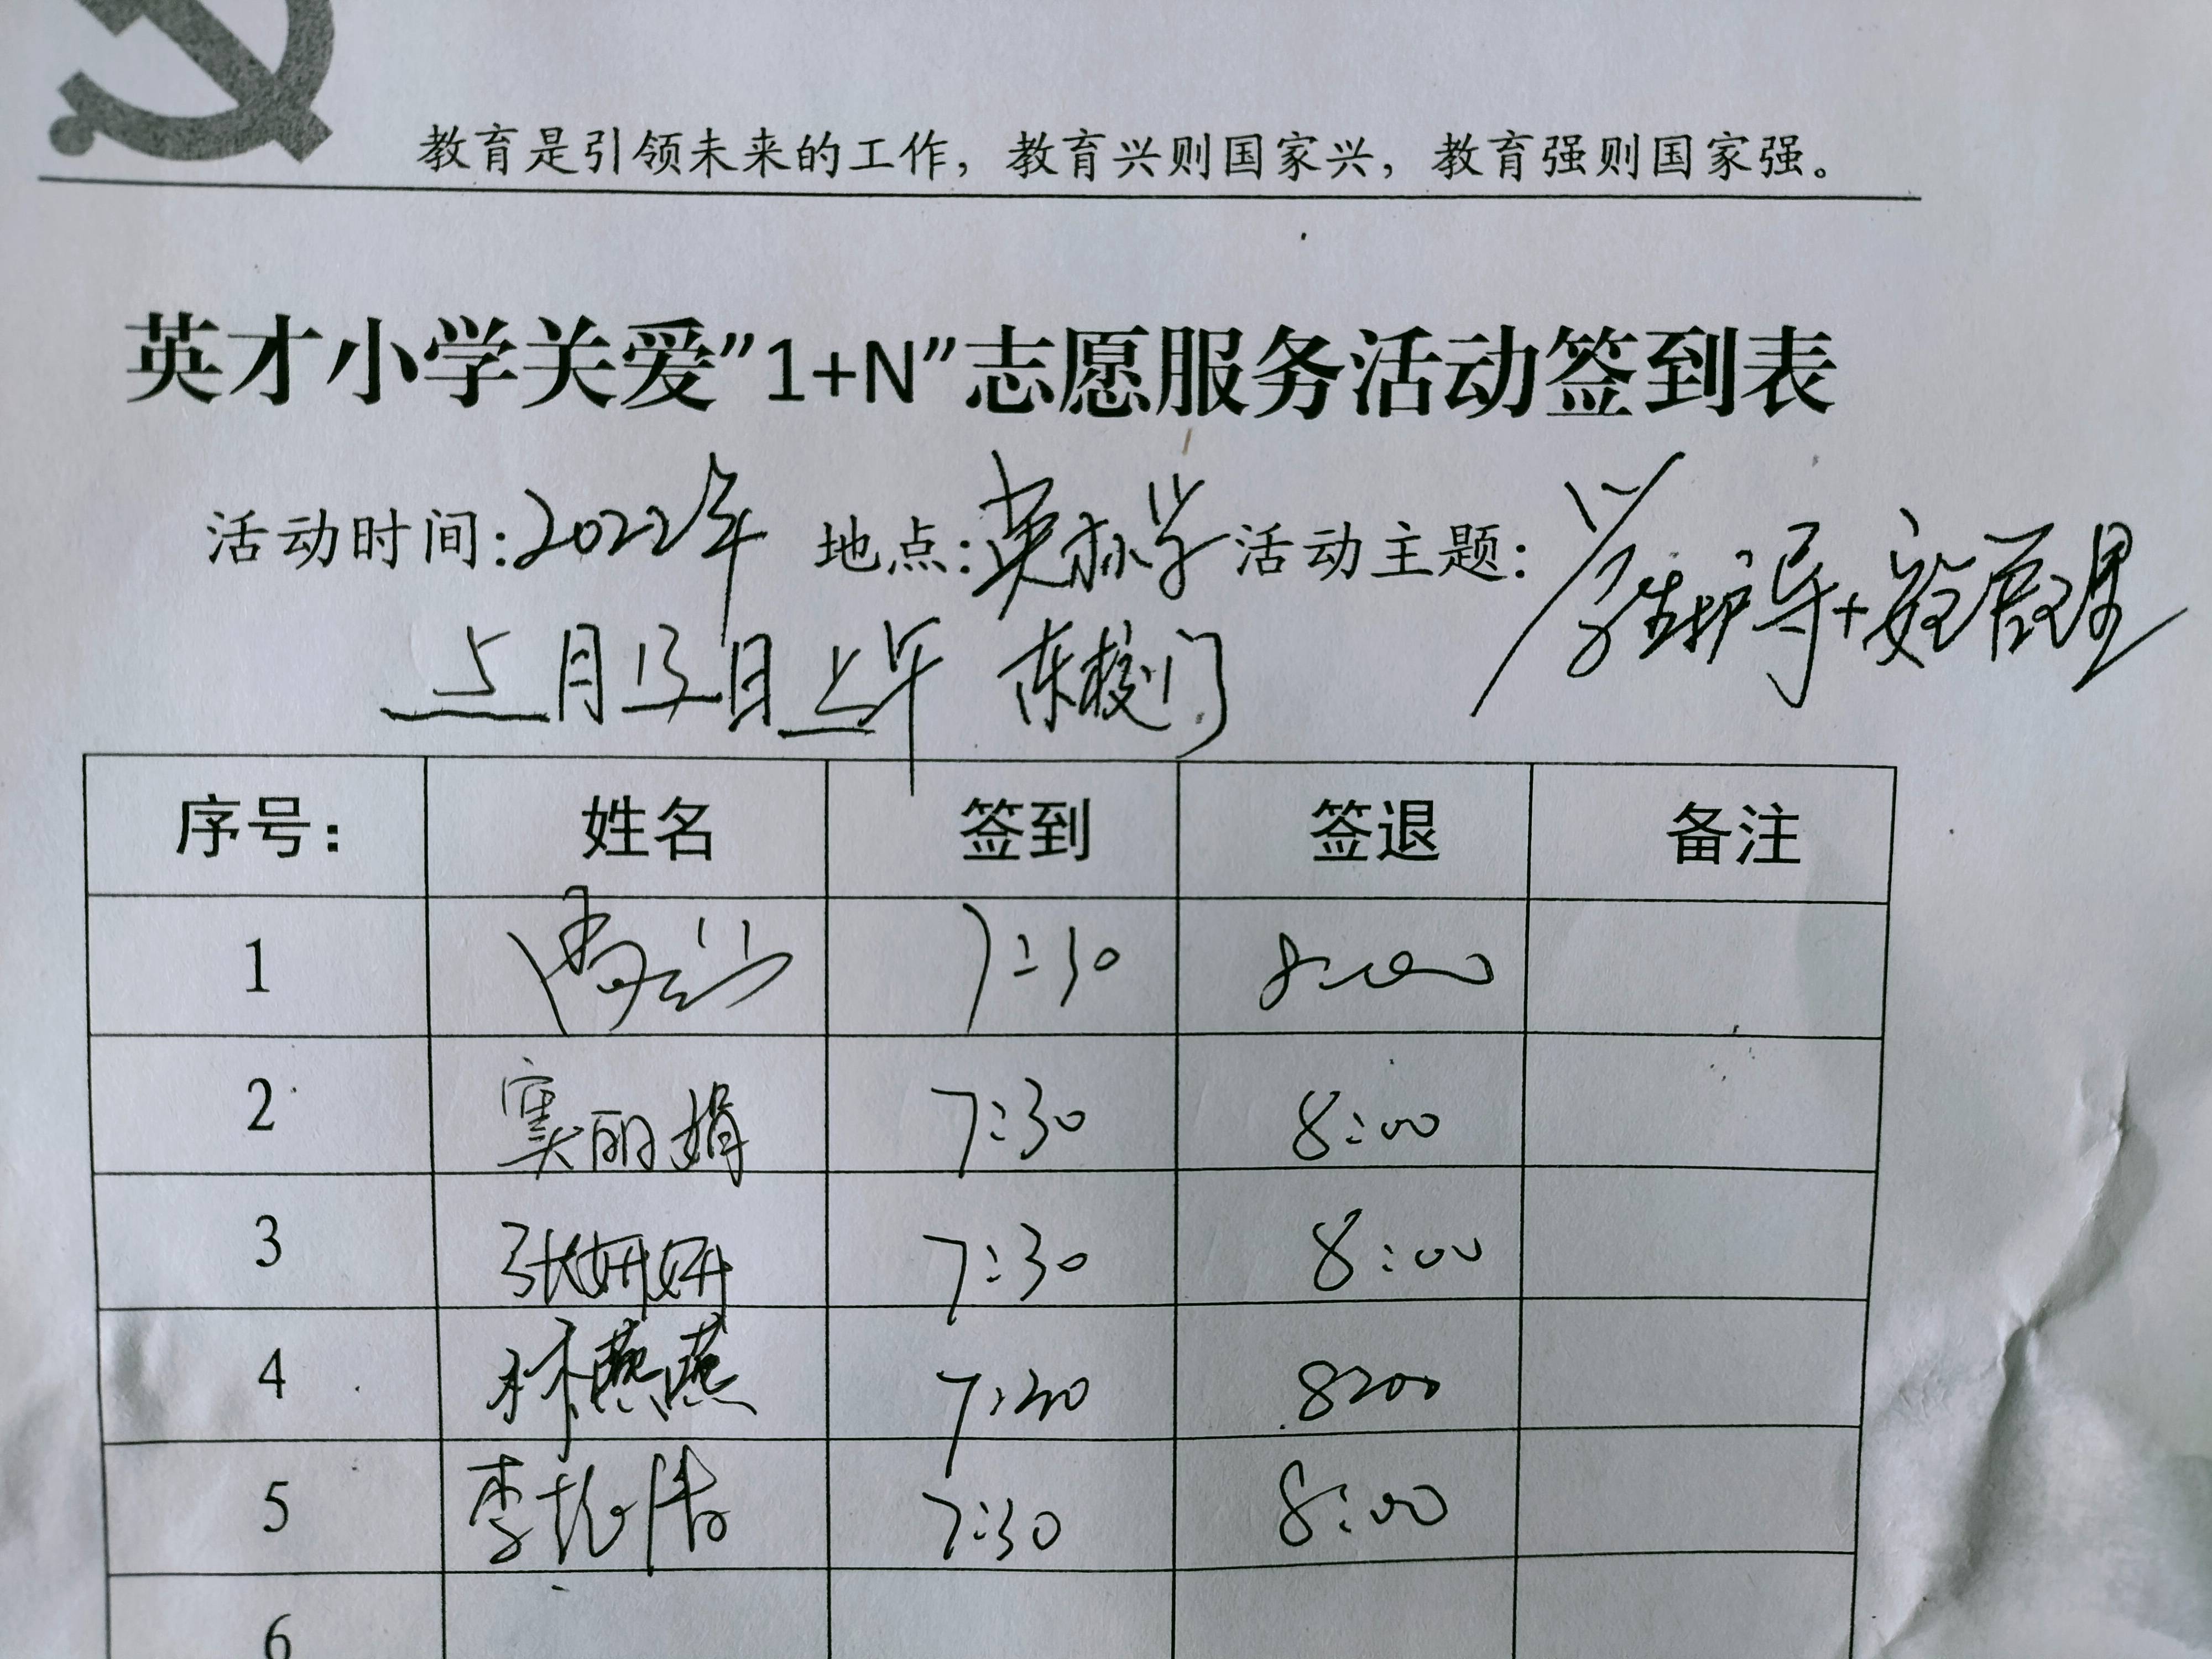 教育是引领未来的工作，教育兴则国家兴，教育强则国家强。
英才小学关爱”1+N”志愿服务活动签到表
活动时间:2022年 地点:英才小学 活动主题:
学生护导+安全管理
5月13日上午 东校门
序号: 姓名 签到 签退 备注
1 7:30 8:00
2 窦丽娟 7:30 8:00
3 张妍妍 7:30 8:00
4 林燕燕 7:30 8:00
5 李 7:30 8:00
6